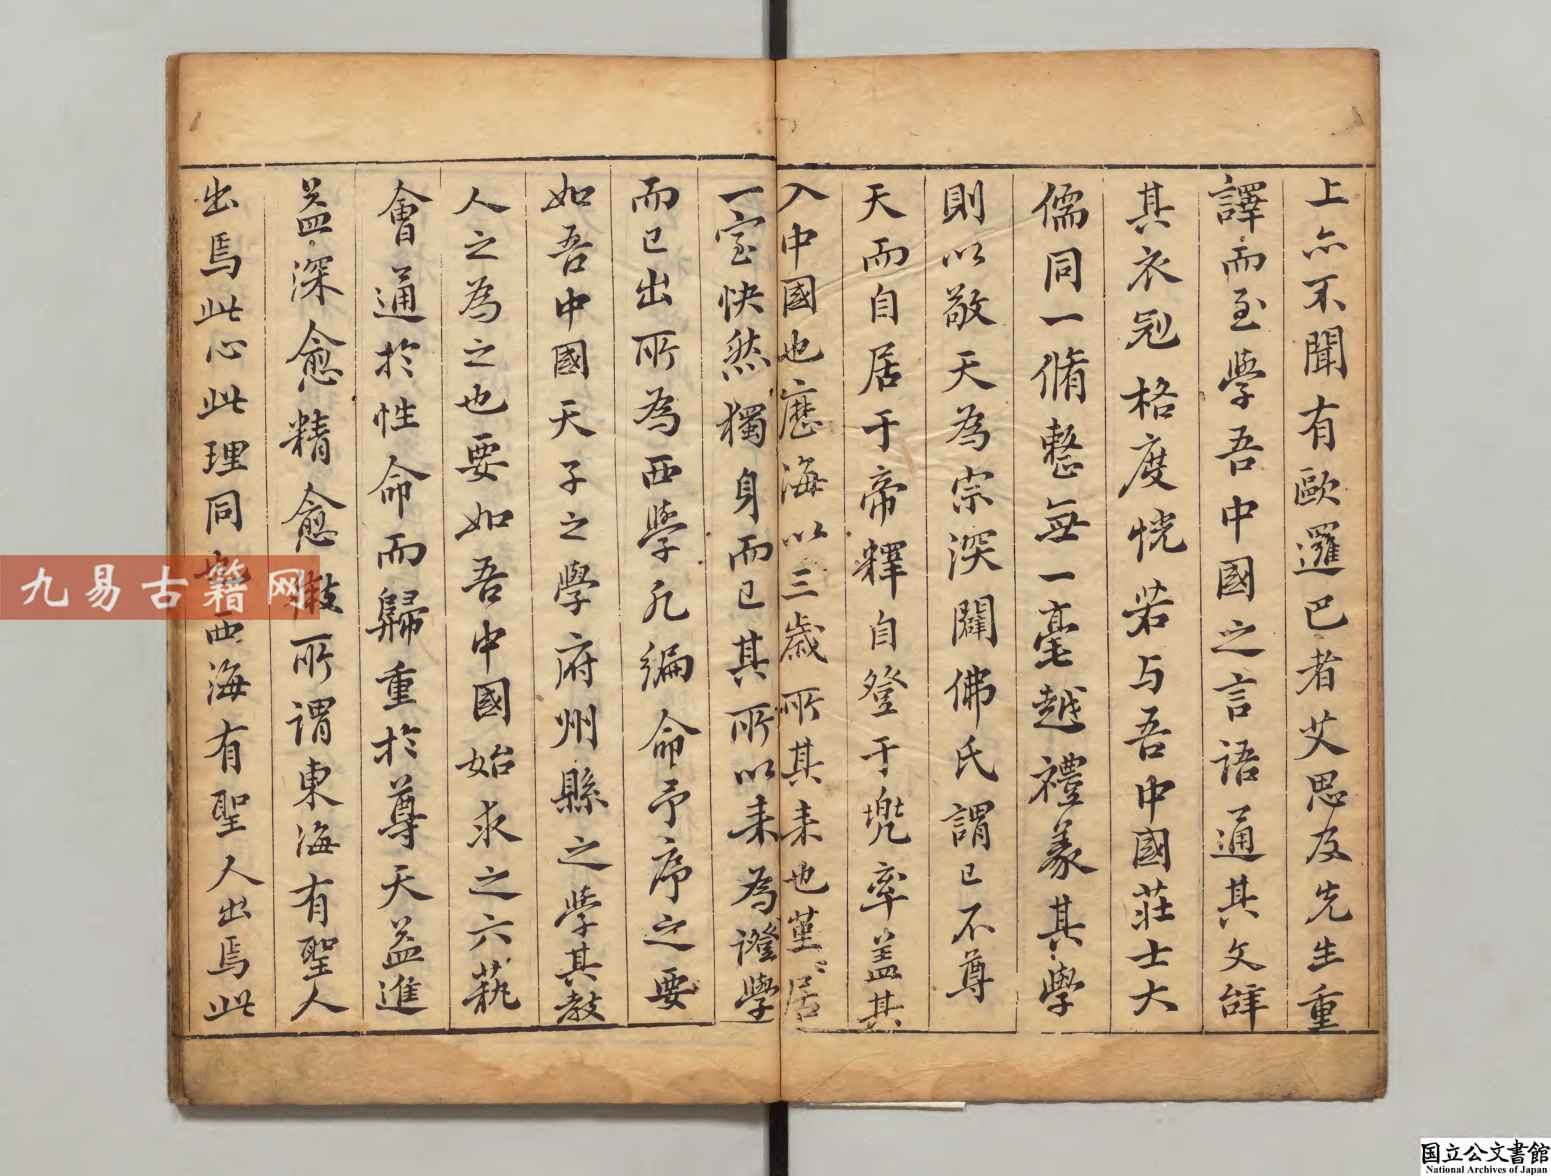 上亦不聞有歐邏巴者艾思及先生重
譯而至學吾中國之言語通其文辭
其衣冠格度恍若与吾中國莊士大
儒同一脩整無一毫越禮義其學
則以敬天為宗深闢佛氏謂已不尊
天而自居于帝釋自登于兠率盖其
入中國也歷海以三歲所其来也堇〻居
一室怏然獨身而已其所以来為證學
而已出所為西學凢編命予序之要
如吾中國天子之學府州縣之學其教
人之為之也要如吾中國始求之六藝
會通於性命而歸重於尊天益進
益深愈精愈所謂東海有聖人
出焉此心此理同也西海有聖人出焉此
九易古籍网
国立公文書館
National Archives of Japan